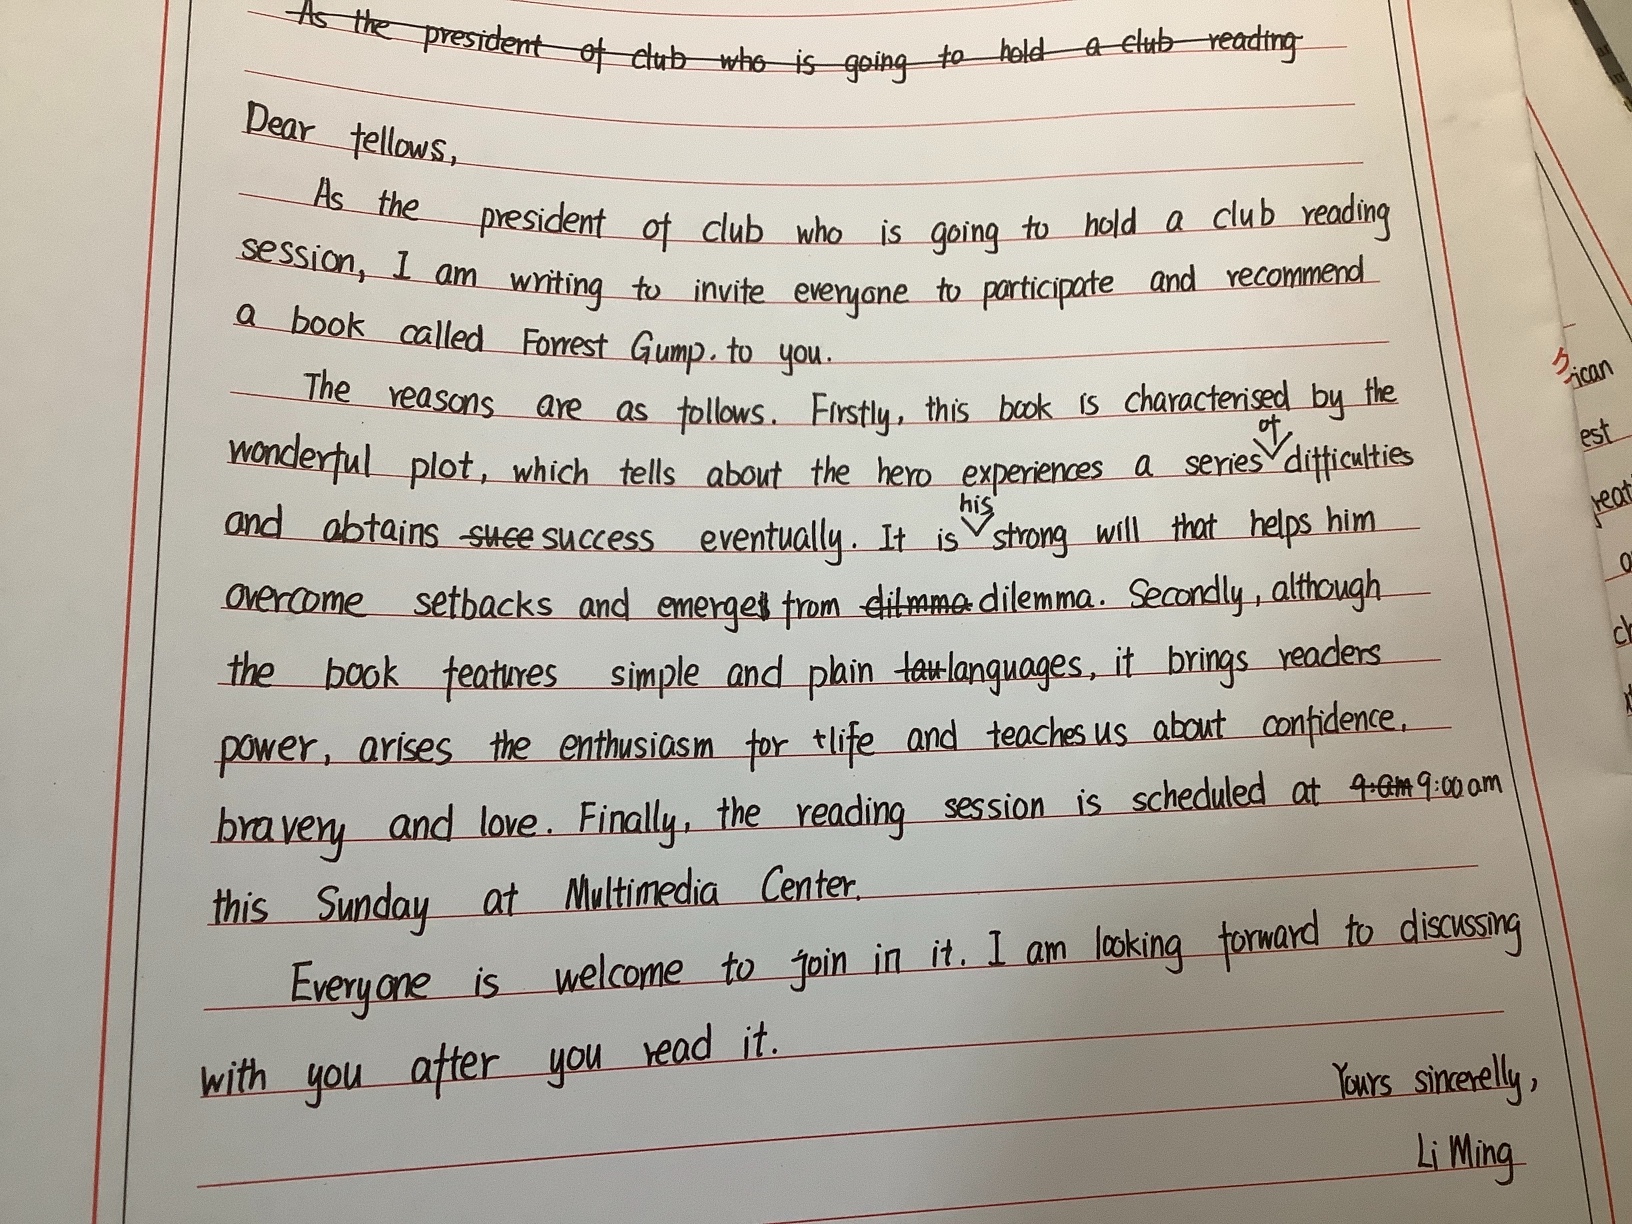 As the president of club who is going to hold a club reading
Dear fellows,
As the president of club who is going to hold a club reading
session, I am writing to invite everyone to participate and recommend
a book called Forrest Gump. to you.
The reasons are as follows. Firstly, this book is characterised by the
wonderful plot, which tells about the hero experiences a series of difficulties
and abtains suce success eventually. It is his strong will that helps him
overcome setbacks and emerges from dilmma dilemma. Secondly, although
the book features simple and plain lau languages, it brings readers
power, arises the enthusiasm for life and teaches us about confidence,
bravery and love. Finally, the reading session is scheduled at 9:am 9:00 am
this Sunday at Multimedia Center.
Everyone is welcome to join in it. I am looking forward to discussing
with you after you read it.
Yours sincerelly,
Li Ming
ican
est